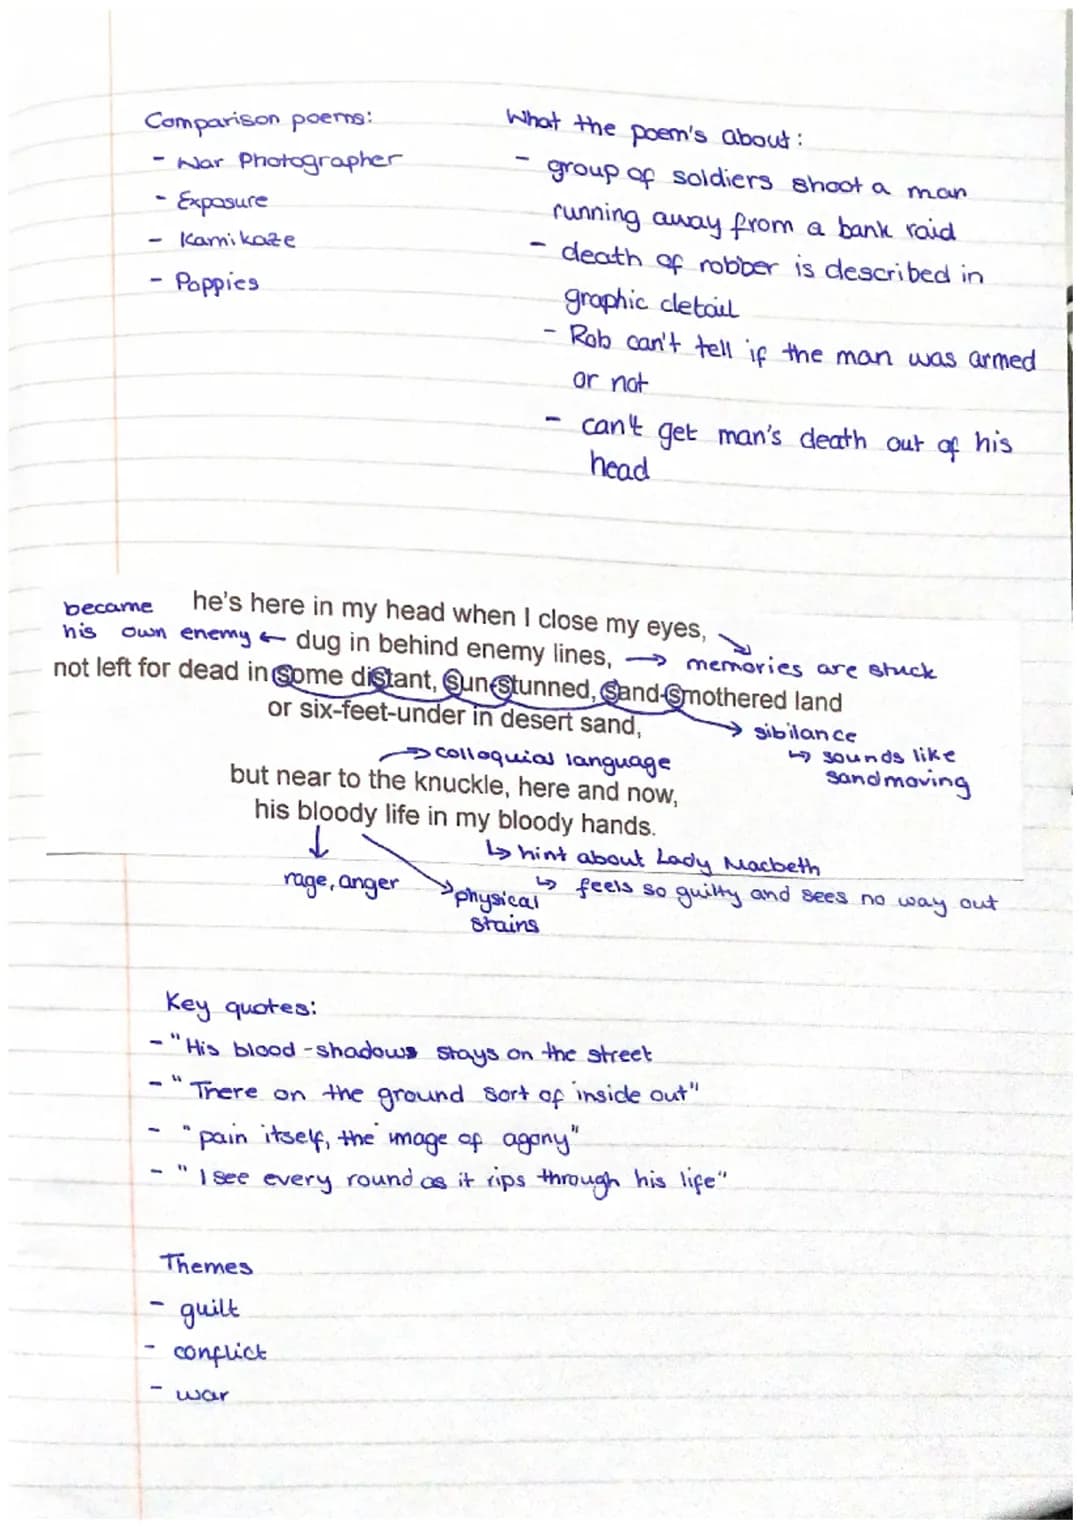 Comparison poems:
- War Photographer
- Exposure
- Kamikaze
- Poppies
What the poem's about:
- group of soldiers shoot a man
running away from a bank raid
- death of robber is described in
graphic detail
- Rob can't tell if the man was armed
or not
- can't get man's death out of his
head
he's here in my head when I close my eyes,
became
his own enemy ← dug in behind enemy lines, → memories are stuck
not left for dead in some distant, sun-stunned, sand-smothered land
or six-feet-under in desert sand,
→ sibilance
↳ sounds like
sand moving
→ colloquial language
but near to the knuckle, here and now,
his bloody life in my bloody hands.
↳ hint about Lady Macbeth
↳ feels so guilty and sees no way out
rage, anger
physical
stains
Key quotes:
- "His blood-shadows stays on the street
- "There on the ground sort of inside out"
- "pain itself, the image of agony"
- "I see every round as it rips through his life"
Themes
- guilt
- conflict
- war